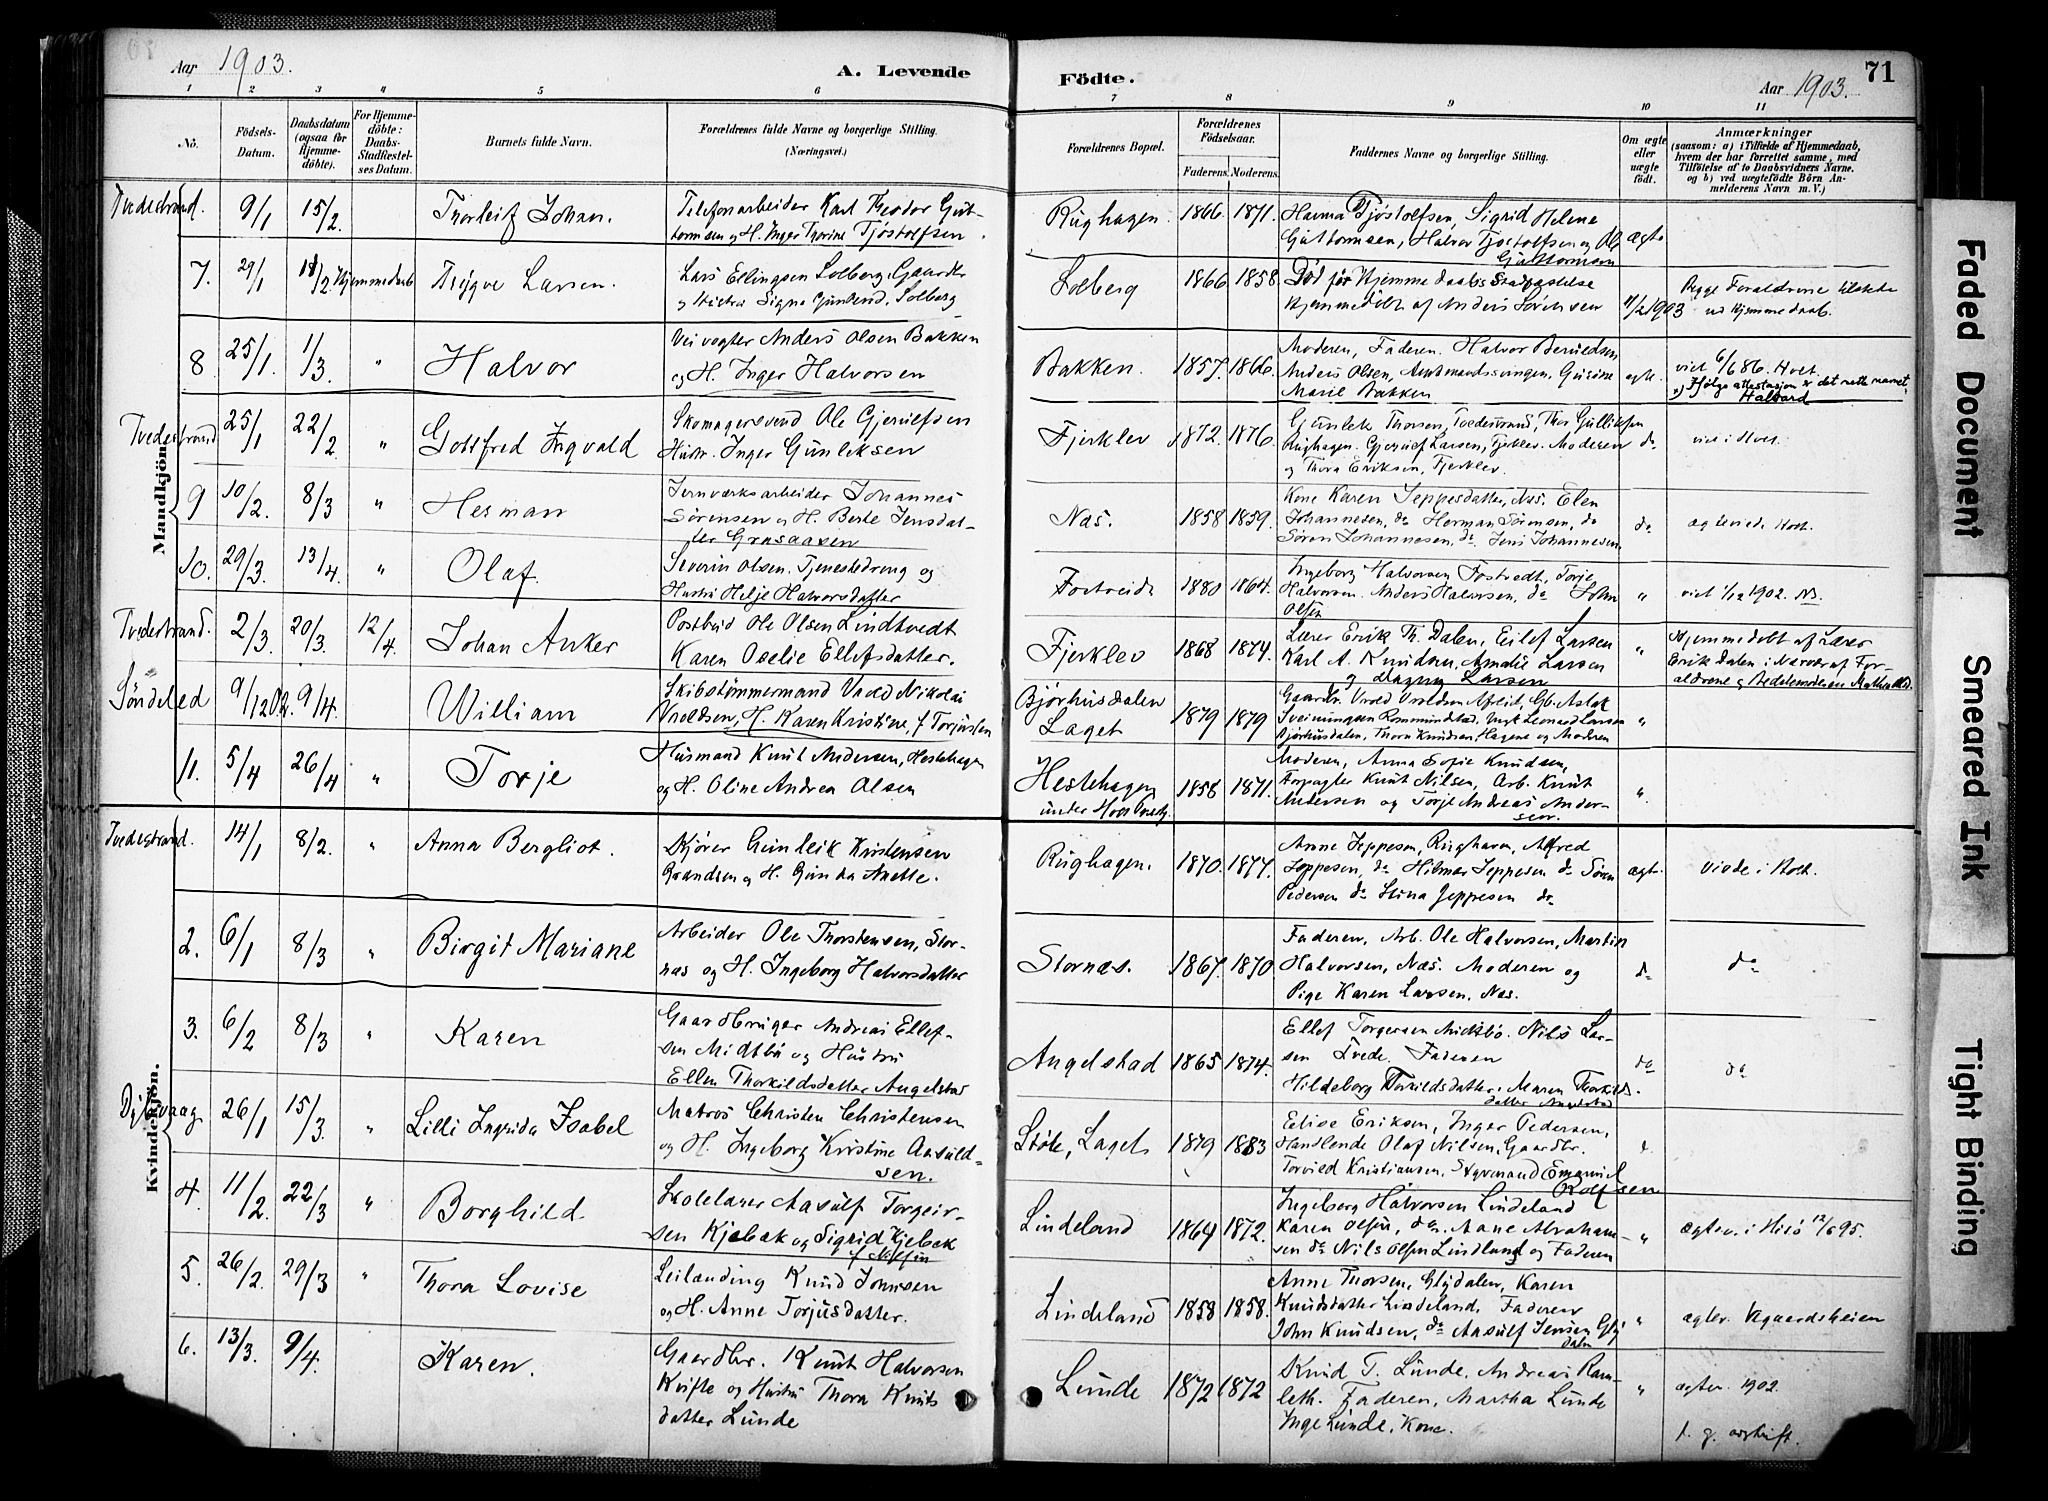 Aar 1903.
A. Levende
Födte.
71
Aar 1903.
1 2 3 4 5 6 7 8 9 10 11
No.
Födsels-Datum.
Daabsdatum (ogsaa for Hjemme-döbte).
For Hjemme-döbte: Daabs-Stadfæstel-ses Datum.
Barnets fulde Navn.
Forældrenes fulde Navne og borgerlige Stilling. (Næringsvei.)
Forældrenes Bopæl.
Forældrenes Födselsaar.
Faderens. Moderens.
Faddernes Navne og borgerlige Stilling.
Om ægte eller uægte födt.
Anmærkninger
(saasom: a) i Tilfælde af Hjemmedaab,
hvem der har forrettet samme, med
Tilföielse af to Daabsvidners Navne,
og b) ved uægtefödte Börn An-
melderens Navn m. V.)
Mandkjön.
Tvedestrand. 9/1 15/2. Thorleif Johan.
Telefonarbeider Karl Teodor Gut-
tormsen og H. Inger Thorine Tjøstolfsen.
Rughagen. 1866. 1871.
Hanna Tjøstolfsen, Sigrid Helene
Guttormsen, Halvor Tjostolfsen og
Guttormsen
ægte
7. 29/1 11/2. Hjemmedaab Trygve Larsen.
Lars Erlingsen Solberg, Gaardbr
og Hustru Signe Solberg
Solberg 1866 1858
Død før Hjemmedaabs Stadfæstelse
Hjemmedøbt af Anders Sørensen
11/2 1903
Begge Forældrene tilstede
ved Hjemmedaab.
8. 25/1. 1/3. " Halvor
Veivogter Anders Olsen Bakken
og H. Inger Halvorsen
Bakken. 1857. 1866.
Moderen, Faderen. Halvor
Anders Olsen, Amtmandssvingen, Gurine
Marie Bakken
ægte.
viet 6/6 86. Holt.
Ifølge attestasjon er det rette navnet
Halvard
Tvedestrand 25/1 22/2. " Gottfred Ingvald
Skomagersvend Ole Gjerulfsen
Hustr. Inger Gunleksen
Fjerklev 1872. 1876.
Gunlek Thorsen, Tvedestrand, Thor Gulliksen
Rughagen. Gjerulf Larsen, Fjerklev. Moderen
og Thora Eriksen, Fjerklev.
do
vied i Holt.
9 10/2. 8/3 " Herman
Jernværksarbeider Johannes
Sørensen og H. Berte Jensdat-
ter Grasaasen
Næs. 1858 1859.
Kone Karen Jeppesdatter, Næs. Elen
Johannesen, do Herman Sørensen, do
Søren Johannesen, do. Jens Johannesen.
do
10. 29/3. 13/4. " Olaf.
Severin Olsen. Tjenestedreng og
Hustru Helje Halvorsdatter
1880 1864.
Ingeborg Halvorsen Fostvedt. Torje
Halvorsen. Anders Halvorsen, do John
Olsen
"
viet 1/12 1902.
Tvedestrand. 2/3. 20/3. 12/4 Johan Anker
Postbud Ole Olsen Lindtvedt
Karen Oselie Ellefsdatter.
Fjerklev 1868 1874.
Lærer Erik Th. Dalen, Eilef Larsen
Karl A. Knudsen, Amalie Larsen
og Dagny Larsen
"
Hjemmedøbt af Lærer
Erik Dalen i Nærvær af For-
ældrene og Bedstemoderen
Söndeled 9/12 02. 9/4. William
Skibstømmermand Vrold Nikolai
Vroldsen, H. Karen Kristine, f. Torjussen
Bjørhusdalen
Laget 1879 1879
Gaardbr. Vrold Vroldsen Gb. Aslak
Larsen
Bjørhusdalen, Thora Knudsen, Hagene og Moderen
"
11. 5/4 26/4 " Torje
Husmand Knut Andersen, Hestehagen
og H. Oline Andrea Olsen
Hestehagen
under 1858 1871.
Moderen, Anna Sofie Knudsen,
Forpagter Knut Nilsen, Arb. Knut
Andersen og Torje Andreas Ander-
sen.
"
Kvindekjön.
Tvedestrand. 14/1 8/2. " Anna Bergliot.
Kjører Gunleik Kristensen
og H. Anette.
Rughagen. 1870. 1877.
Anne Jeppesen, Rughaven, Alfred
Jeppesen, do Hilmar Jeppesen do Søren
Pedersen do Stina Jeppesen do
ægt.
viede i Holt.
2. 6/1 8/3 " Birgit Mariane
Arbeider Ole Thorstensen, Stor-
næs og H. Ingeborg Halvorsdatter
Stornæs. 1867. 1870
Faderen, Arb. Ole Halvorsen, Martin
Halvorsen, Næs. Moderen og
Pige Karen Larsen, Næs.
do
do
3. 6/2 8/3 " Karen
Gaardbruger Andreas Ellef-
sen Midtbø og Hustru
Ellen Thorkildsdatter Angelstad
Angelstad 1865 1874.
Ellef Torgersen Midtbø. Nils Lar-
sen Tvede. Faderen
Hildeborg Torkildsdatter. Maren Thorkilds-
datter Angelstad
do
do
Dypvaag 26/1 15/3. " Lilli Ingrida Isabel
Matros Christen Christensen
og H. Ingeborg Kristine Aasuld-
sen.
Støle, Laget 1879 1883
Eelise Eriksen, Inger Pedersen,
Handlende Olaf Nilsen, Gaardbr.
Torvild Kristiansen, Styrmand Emanuel
Rolfsen
4. 11/2. 22/3 " Borghild
Skolelærer Aasulf Torgeir-
sen Kjebæk og Sigrid Kjebæk
f. Nilsen
Lindeland 1864 1872.
Ingeborg Halvorsen Lindeland
Karen Olsen, do. Aane Abraham-
sen do Nils Olsen Lindland og Faderen
"
ægtev. i Hisö 12/6 95.
5. 26/2. 29/3 " Thora Lovise
Leilænding Knud Johnsen
og H. Anne Torjusdatter.
Lindeland 1858 1858.
Anne Thorsen, Glydalen, Karen
Knudsdatter Lindeland. Faderen
John Knudsen, do Aasulf Jensen Gly-
dalen
"
ægtev. Vegaardsheien
6. 13/3. 9/4. Karen.
Gaardbr. Knut Halvorsen
og Hustru Thora Knuts
datter Lunde
Lunde 1872 1872
Knud T. Lunde, Andreas Ram-
leth. Faderen, Martha Lunde
Inge Lunde, Kone.
"
ægtev. 1902.
Faded Document
Smeared Ink
Tight Binding